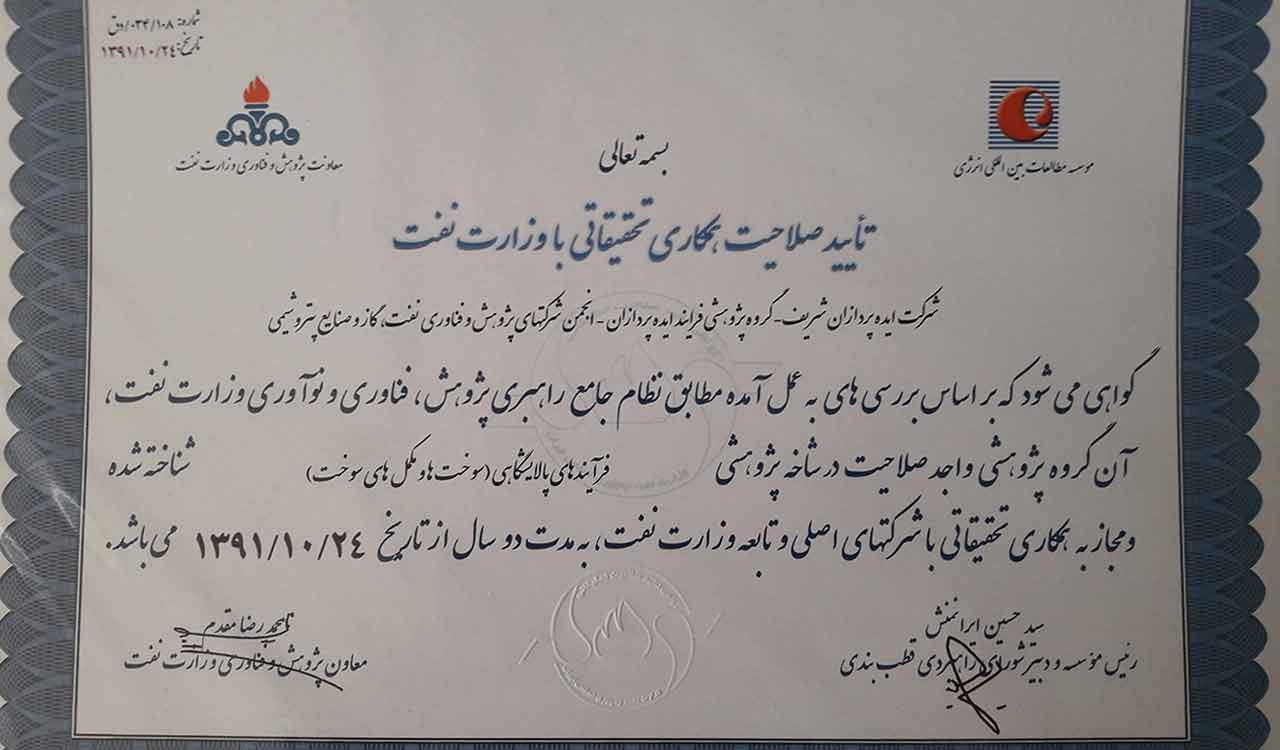 شماره: ۰۳۴/۱۰۸/دق
تاریخ: ۱۳۹۱/۱۰/۲۴
معاونت پژوهش و فناوری وزارت نفت
موسسه مطالعات بین المللی انرژی
بسمه تعالی
تأیید صلاحیت همکاری تحقیقاتی با وزارت نفت
شرکت ایده پردازان شریف - گروه پژوهشی فرایند ایده پردازان - انجمن شرکتهای پژوهش و فناوری نفت، گاز و صنایع پتروشیمی
گواهی می شود که بر اساس بررسی های به عمل آمده مطابق نظام جامع راهبری پژوهش، فناوری و نوآوری وزارت نفت،
آن گروه پژوهشی واجد صلاحیت در شاخه پژوهشی فرآیندهای پالایشگاهی (سوخت ها و مکمل های سوخت) شناخته شده
و مجاز به همکاری تحقیقاتی با شرکتهای اصلی و تابعه وزارت نفت، به مدت دو سال از تاریخ ۱۳۹۱/۱۰/۲۴ می باشد.
سید حسین ایرانمنش
رئیس مؤسسه و دبیر شورای راهبردی قطب بندی
محمد رضا مقدم
معاون پژوهش و فناوری وزارت نفت